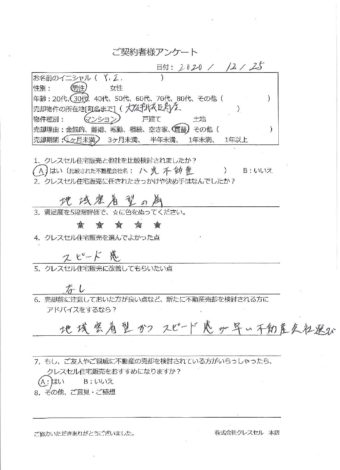 ご契約者様アンケート
日付: 2020 / 12 / 25
お名前のイニシャル ( Y. I. )
性別： 男性 女性
年齢：20代、30代、40代、50代、60代、70代、80代、その他 ( )
売却物件の所在地[町名まで] ( 大阪市
物件種別： マンション 戸建て 土地
売却理由：金銭的、離婚、転勤、相続、空き家、その他 ( )
売却期間：1ヶ月未満 3ヶ月未満、半年未満、1年未満、1年以上
1．クレスセル住宅販売と他社を比較検討されましたか？
A：はい（比較された不動産会社名： 不動産 ） B：いいえ
2．クレスセル住宅販売に任されたきっかけや決め手はなんでしたか？
地域密着型の為
3．満足度を5段階評価で、☆に色をぬってください。
★ ★ ★ ★ ★
4．クレスセル住宅販売を選んでよかった点
スピード感
5．クレスセル住宅販売に改善してもらいたい点
なし
6．売却前に注意しておいた方が良い点など、新たに不動産売却を検討される方に
アドバイスをするなら？
地域密着型かつスピード感が早い不動産会社選び
7．もし、ご友人やご親戚に不動産の売却を検討されている方がいらっしゃったら、
クレスセル住宅販売をおすすめになりますか？
A：はい B：いいえ
8．その他、ご意見・ご感想
ご協力いただきありがとうございました。 株式会社クレスセル 本店